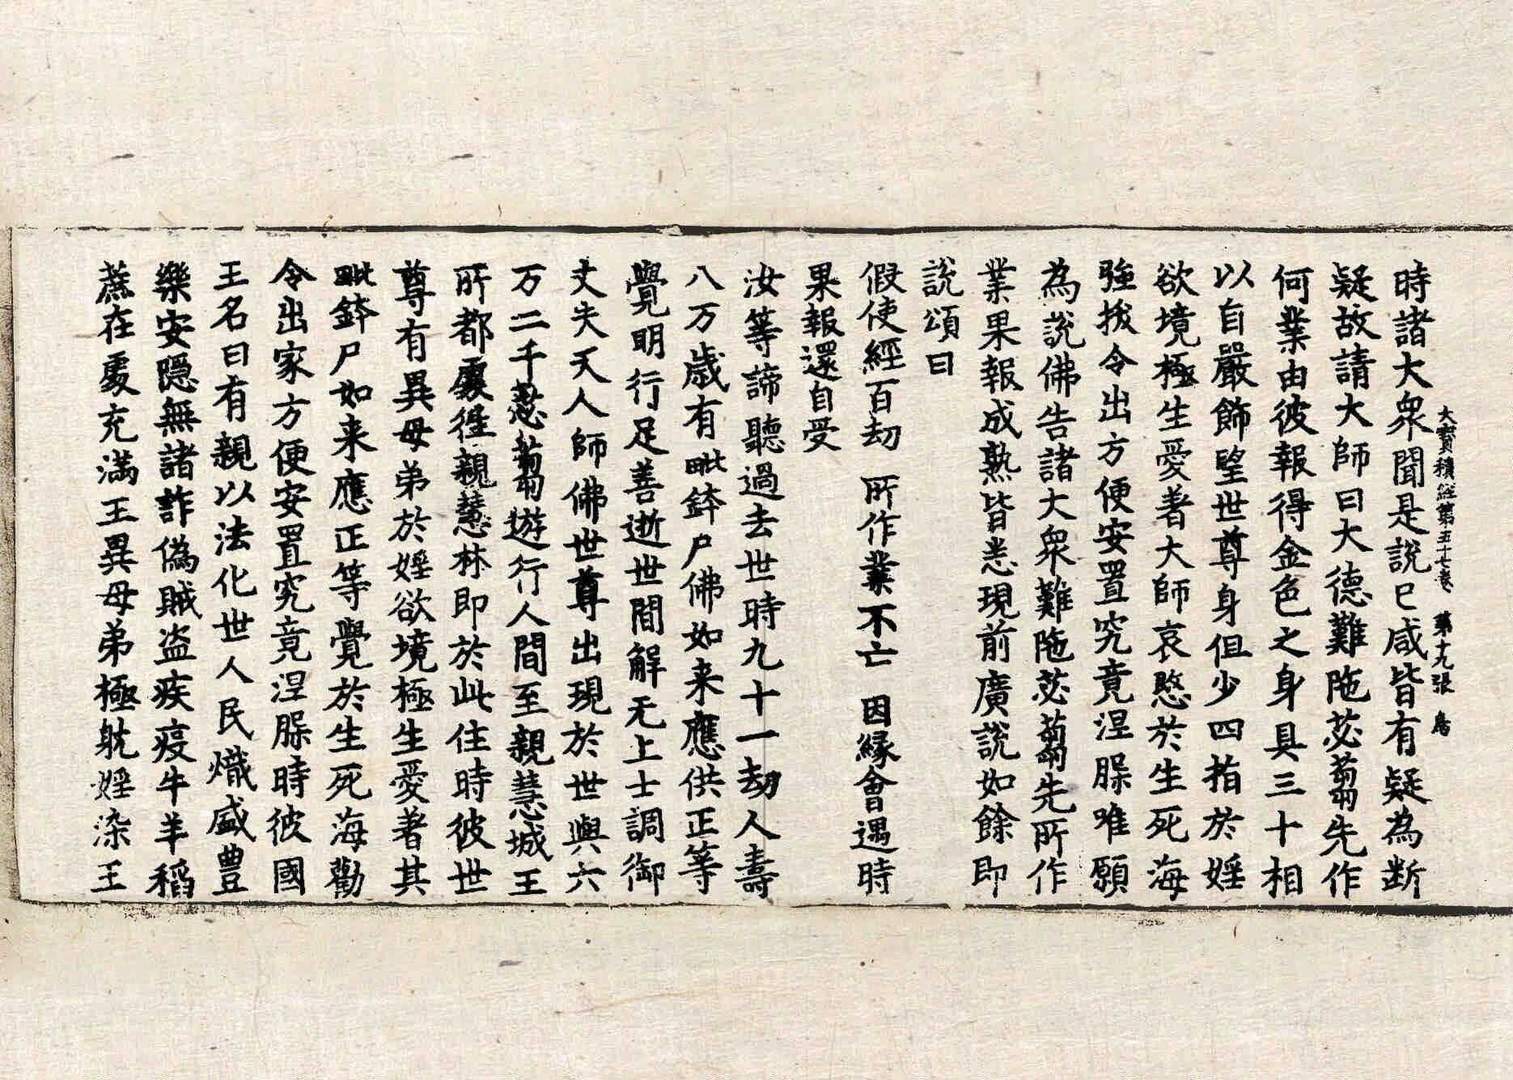 大寳積經第五十七卷 第十九張
時諸大衆聞是說已咸皆有疑為断
疑故請大師曰大德難陁苾蒭先作
何業由彼報得金色之身具三十相
以自嚴飾望世尊身但少四指於婬
欲境極生愛著大師哀愍於生死海
強拔令出方便安置究竟涅槃唯願
為說佛告諸大衆難陁苾蒭先所作
業果報成熟皆悉現前廣說如餘即
說頌曰
假使經百劫 所作業不亡 因緣會遇時
果報還自受
汝等諦聽過去世時九十一劫人壽
八万歲有毗鉢尸佛如来應供正等
覺明行足善逝世間解无上士調御
丈夫天人師佛世尊出現於世與六
万二千苾蒭遊行人間至親慧城王
所都處徃親慧林即於此住時彼世
尊有異母弟於婬欲境極生愛著其
毗鉢尸如来應正等覺於生死海勸
令出家方便安置究竟涅槃時彼國
王名曰有親以法化世人民熾盛豊
樂安隱無諸詐偽賊盗疾疫牛羊稻
蔗在處充滿王異母弟極躭婬染王